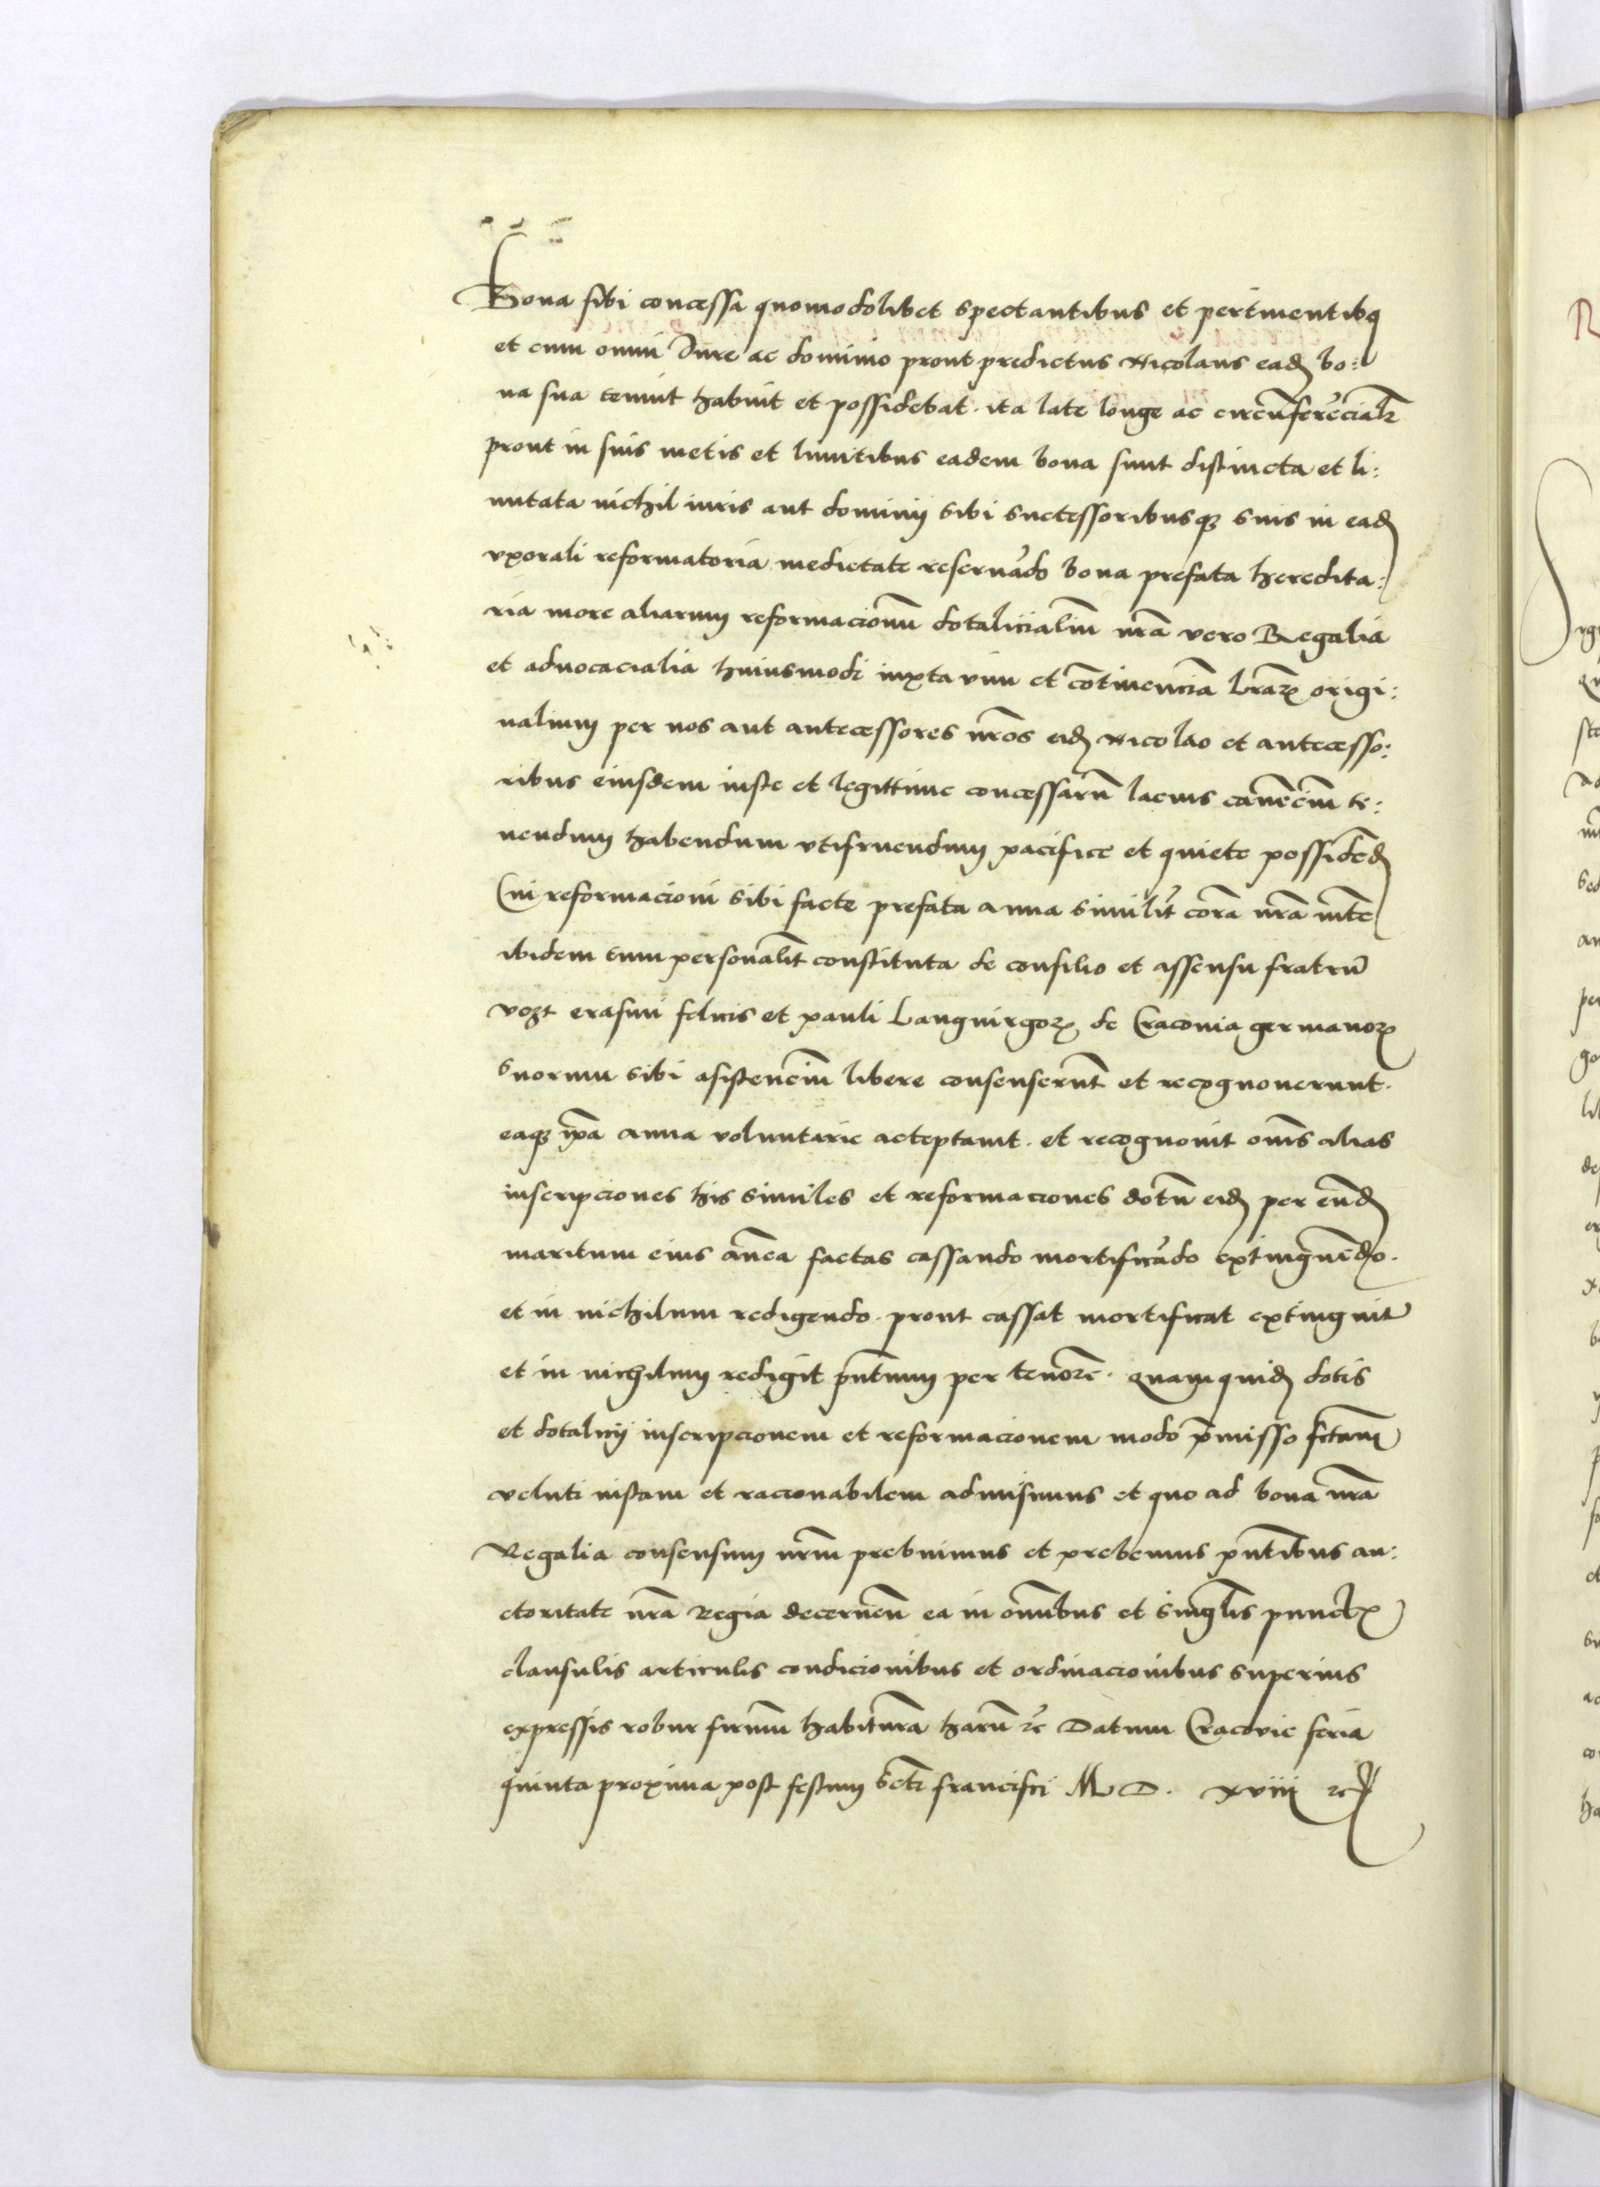 Bona sibi concessa quomodolibet spectantibus et pertinentibꝫ
et cum omni Iure ac dominio prout predictus Nicolaus eadꝫ bo:
na sua tenuit habuit et possidebat. ita late longe ac circũferẽcialꝛ
prout in suis metis et limitibus eadem bona sunt distincta et li:
mitata nichil iuris aut dominij sibi successoribusqꝫ suis in eadꝫ
vxorali reformatoria medietate reseruãdo bona prefata heredita:
ria more aliarum reformacionũ dotalicialiũ nr̃a vero Regalia
et aduocacialia huiusmodi iuxta vim et cõtinenciã lr̃arꝝ origi:
nalium per nos aut antecessores nr̃os eidꝫ Nicolao et antecesso:
ribus eiusdem iuste et legittime concessarũ lacius canẽciũ te:
nendum habendum vtifruendum pacifice et quiete possidẽdꝫ
Cui reformacioni sibi facte prefata Anna similit̃ corã nr̃a mt̃e
ibidem tum personalit̃ constituta de consilio et assensu fratrũ
vꝫt erasmi felicis et pauli Langnirgorꝝ de Craconia germanorꝝ
suorum sibi asistenciũ libere consenserũt et recognouerunt.
eaqꝫ ip̃a anna voluntarie acceptauit. et recognouit om̃s alias
inscripciones his similes et reformaciones dotũ eidꝫ per eũdꝫ
maritum eius añtea factas cassando mortificãdo extinguẽdo.
et in nichilum redigendo. prout cassat mortificat extinguit
et in nichilum redigit pñtium per tenorẽ. Quamquidꝫ dotis
et dotalicij inscripcionem et reformacionem modo p̃misso fc̃tam
veluti iustam et racionabilem admisimus et quo ad bona nr̃a
Regalia consensum nr̃m prebuimus et prebemus pñtibus au:
ctoritate nr̃a Regia decernẽtñ ea in om̃ibus et singl̃is punctꝭ
clausulis articulis condicionibus et ordinacionibus superius
expressis robur firmũ habiturã harũ ⁊c̃ Datum Cracovie feria
quinta proxima post festum sc̃ti francisci M D. xviij ⁊c̃